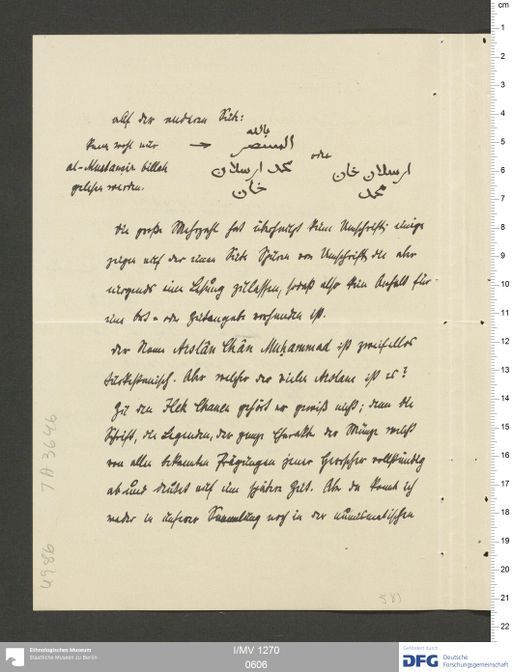 auf der anderen Seite:
kann wohl nur → بالله
المنتصر
al-Mustansir billah محمد ارسلان خان oder ارسلان خان محمد
gelesen werden.
Die große Mehrzahl hat überhaupt keine Umschrift; einige
zeigen auf der einen Seite Spuren von Umschrift, die aber
nirgends eine Lesung zulassen, sodaß also kein Anhalt für
eine Orts- oder Zeitangabe vorhanden ist.
Der Name Arslân Chân Muḥammad ist zweifellos
turkestanisch. Aber welcher der vielen Arslane ist es?
Zu den Ilek Chanen gehört er gewiß nicht; denn die
Schrift, die Legenden, der ganze Charakter der Münze weicht
von allen bekannten Prägungen jener Herrscher vollständig
ab und deutet auf eine spätere Zeit. Aber da konnte ich
weder in unserer Sammlung noch in der numismatischen
7A3646
4986
583
cm
1
2
3
4
5
6
7
8
9
10
11
12
13
14
15
16
17
18
19
20
21
22
Ethnologisches Museum
Staatliche Museen zu Berlin
I/MV 1270
0606
Gefördert durch
DFG Deutsche
Forschungsgemeinschaft